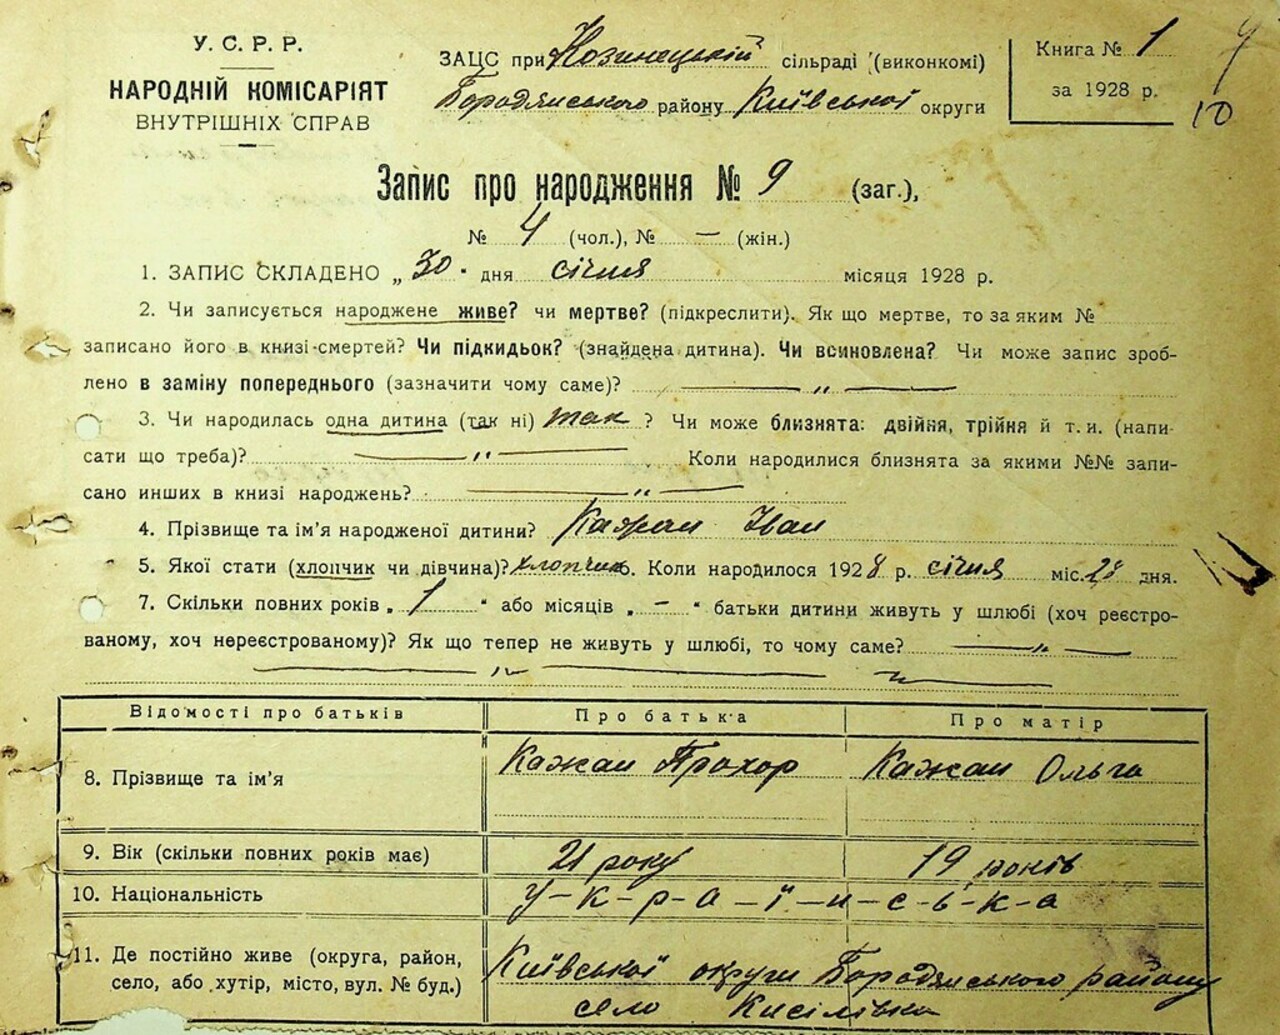 У. С. Р. Р.
НАРОДНІЙ КОМІСАРІЯТ
ВНУТРІШНІХ СПРАВ
ЗАЦС при Козинецькій сільраді (виконкомі)
Бородянського району Київської округи
Книга № 1
за 1928 р.
10
Запис про народження № 9 (заг.),
№ 4 (чол.), № — (жін.)
1. ЗАПИС СКЛАДЕНО „ 30 " дня січня місяця 1928 р.
2. Чи записується народжене живе? чи мертве? (підкреслити). Як що мертве, то за яким №
записано його в книзі смертей? Чи підкидьок? (знайдена дитина). Чи всиновлена? Чи може запис зроб-
лено в заміну попереднього (зазначити чому саме)? — „ —
3. Чи народилась одна дитина (так ні) так ? Чи може близнята: двійня, трійня й т. и. (напи-
сати що треба)? — „ — Коли народилися близнята за якими №№ запи-
сано инших в книзі народжень? — „ —
4. Прізвище та ім'я народженої дитини? Кажан Іван
5. Якої стати (хлопчик чи дівчина)? хлопчик 6. Коли народилося 1928 р. січня міс. 28 дня.
7. Скільки повних років „ 1 " або місяців „ — " батьки дитини живуть у шлюбі (хоч реєстро-
ваному, хоч нереєстрованому)? Як що тепер не живуть у шлюбі, то чому саме? — „ —
— „ —
Відомості про батьків Про батька Про матір
8. Прізвище та ім'я Кажан Прохор Кажан Ольга
9. Вік (скільки повних років має) 21 року 19 років
10. Національність У-к-р-а-ї-н-с-ь-к-а
11. Де постійно живе (округа, район, Київської округи Бородянського району
село, або хутір, місто, вул. № буд.) село Кисілівка